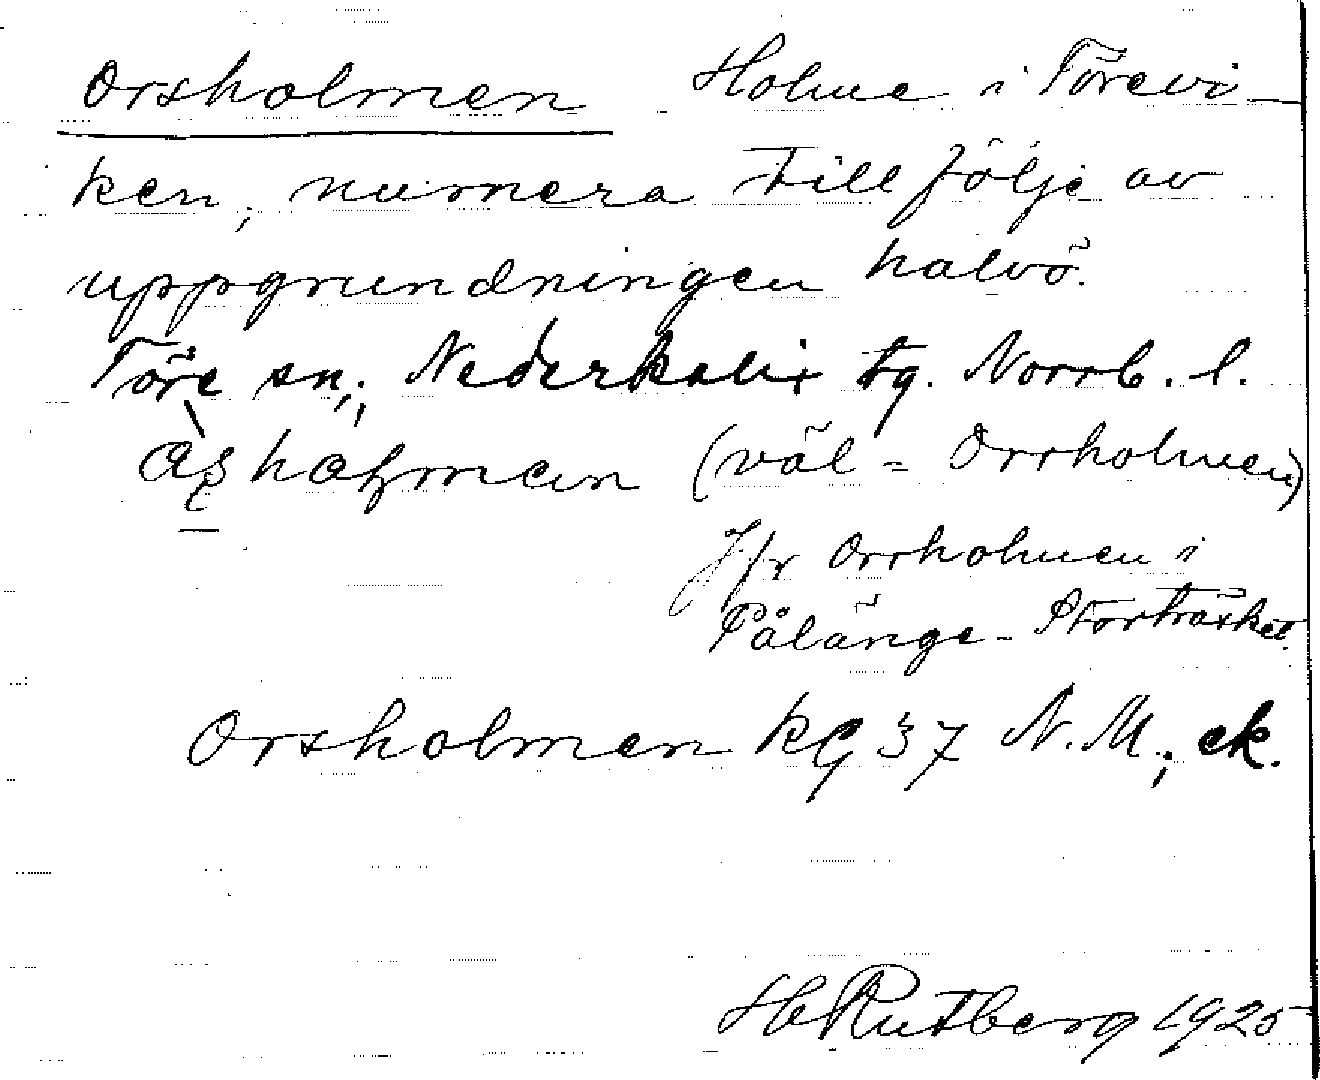 Orsholmen Holme i Törevi-
ken, numera till följe av
uppgrundningen halvö.
Töre sn; Nederkalix tg. Norrb. l.
(väl = Orrholmen)
Jfr Orrholmen i
Pålänge-Storträsket.
Orsholmen kg 37 N.M.; ek.
H Rutberg 1925